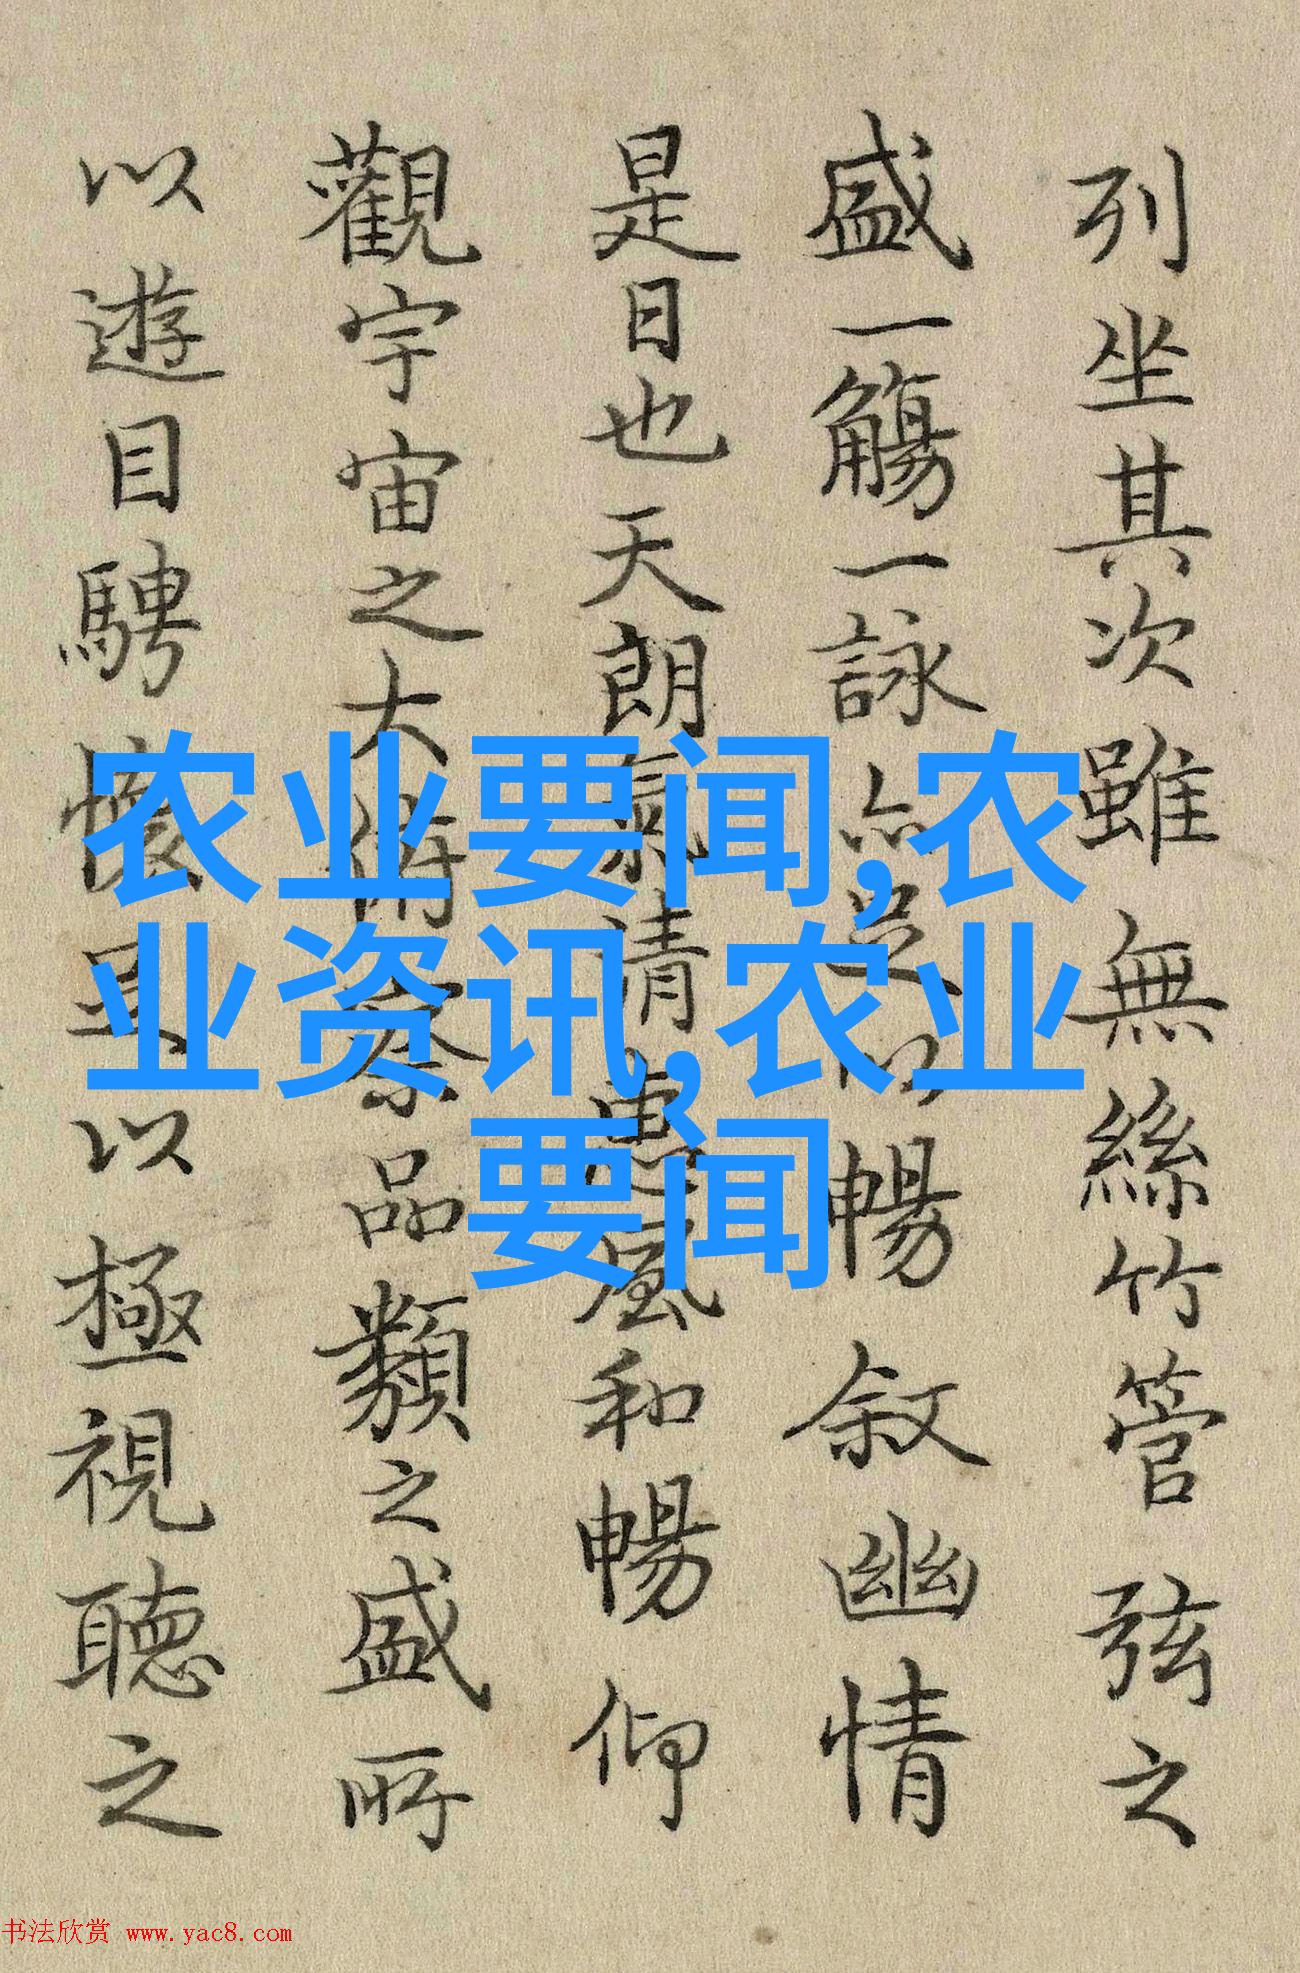 列坐其次雖無絲竹管弦之
盛一觴一詠亦足以暢叙幽情
是日也天朗氣清惠風和暢仰
觀宇宙之大俯察品類之盛所
以遊目騁懷足以極視聽之
农业要闻,农
业资讯,农业
要闻
书法欣赏 www.yac8.com